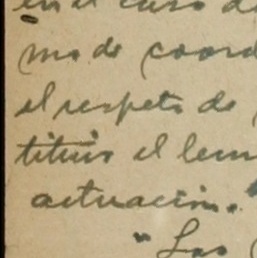 en el caso de
mo de coord
el respeto de
tituir el lem
actuación.
"Los